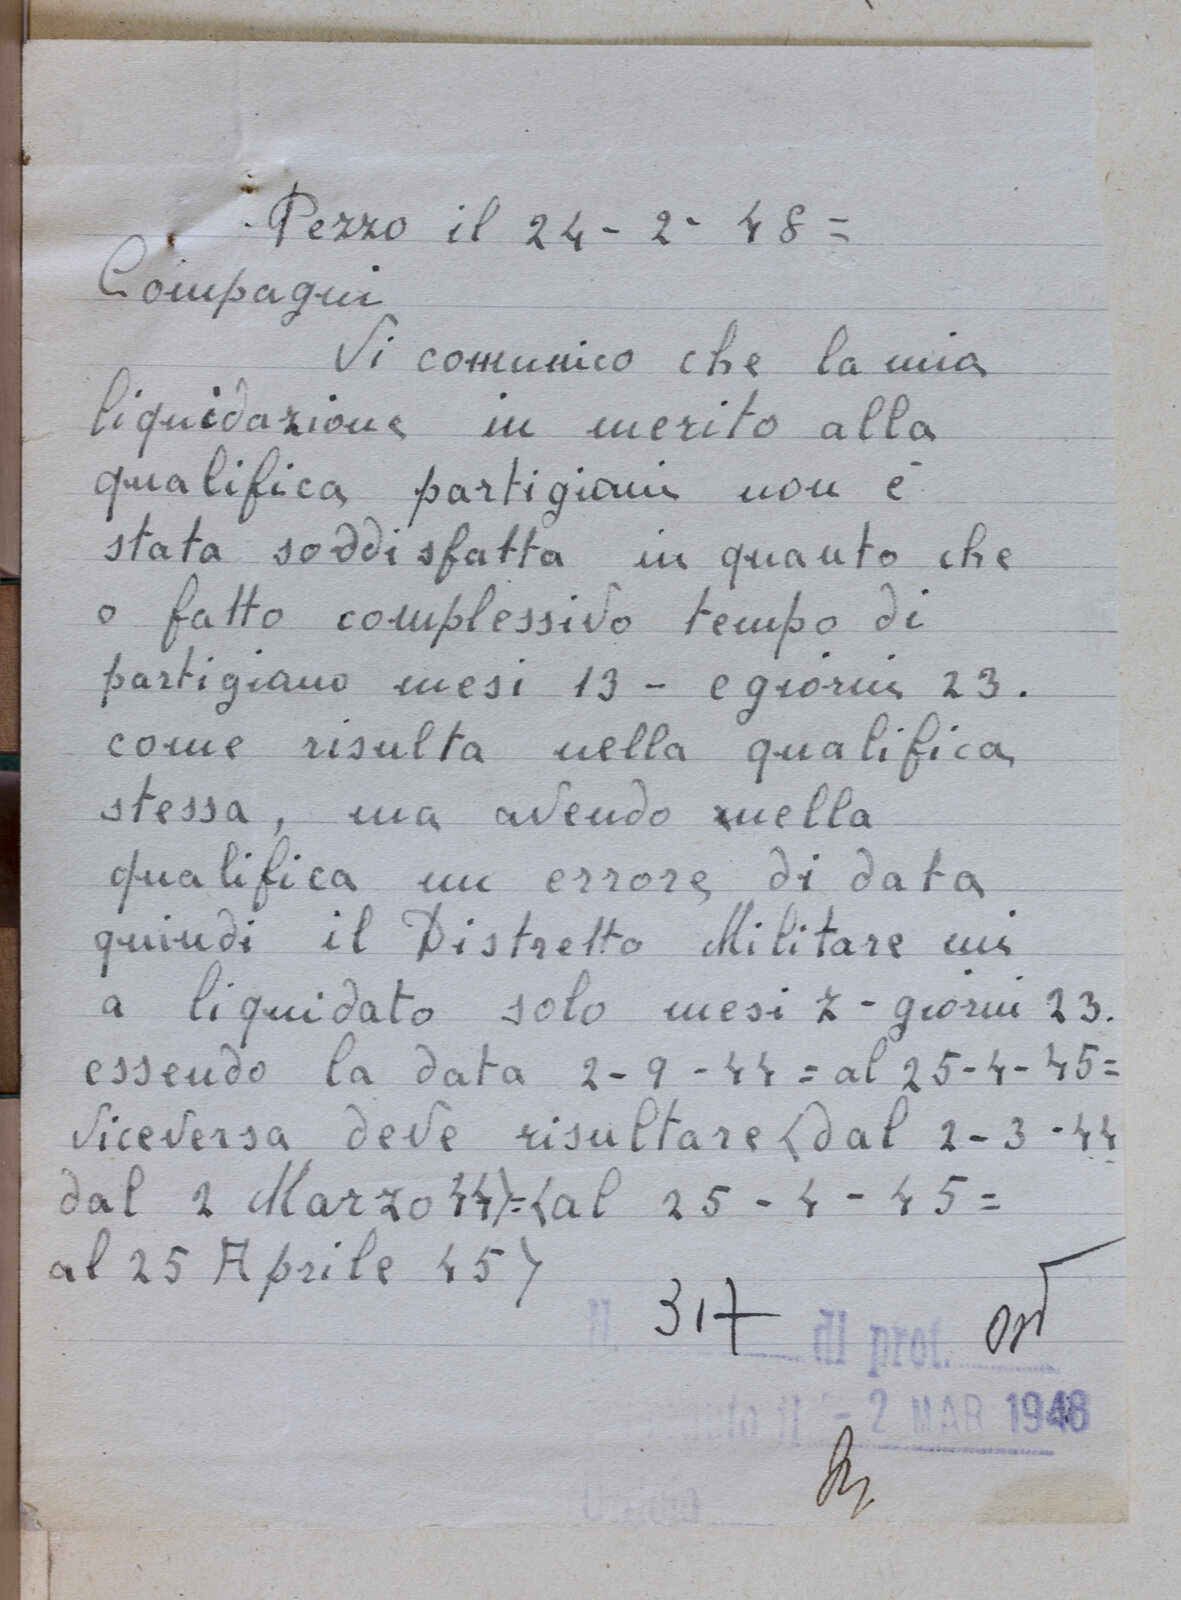 Pezzo il 24-2-48=
Compagni
Vi comunico che la mia
liquidazione in merito alla
qualifica partigiani non è
stata soddisfatta in quanto che
o fatto complessivo tempo di
partigiano mesi 13 - e giorni 23.
come risulta nella qualifica
stessa, ma avendo nella
qualifica un errore di data
quindi il Distretto Militare mi
a liquidato solo mesi 7 - giorni 23.
essendo la data 2-9-44= al 25-4-45=
viceversa deve risultare (dal 2-3-44
dal 2 Marzo 44)=(al 25-4-45=
al 25 Aprile 45)
N. 317 di prot.
- 2 MAR 1948